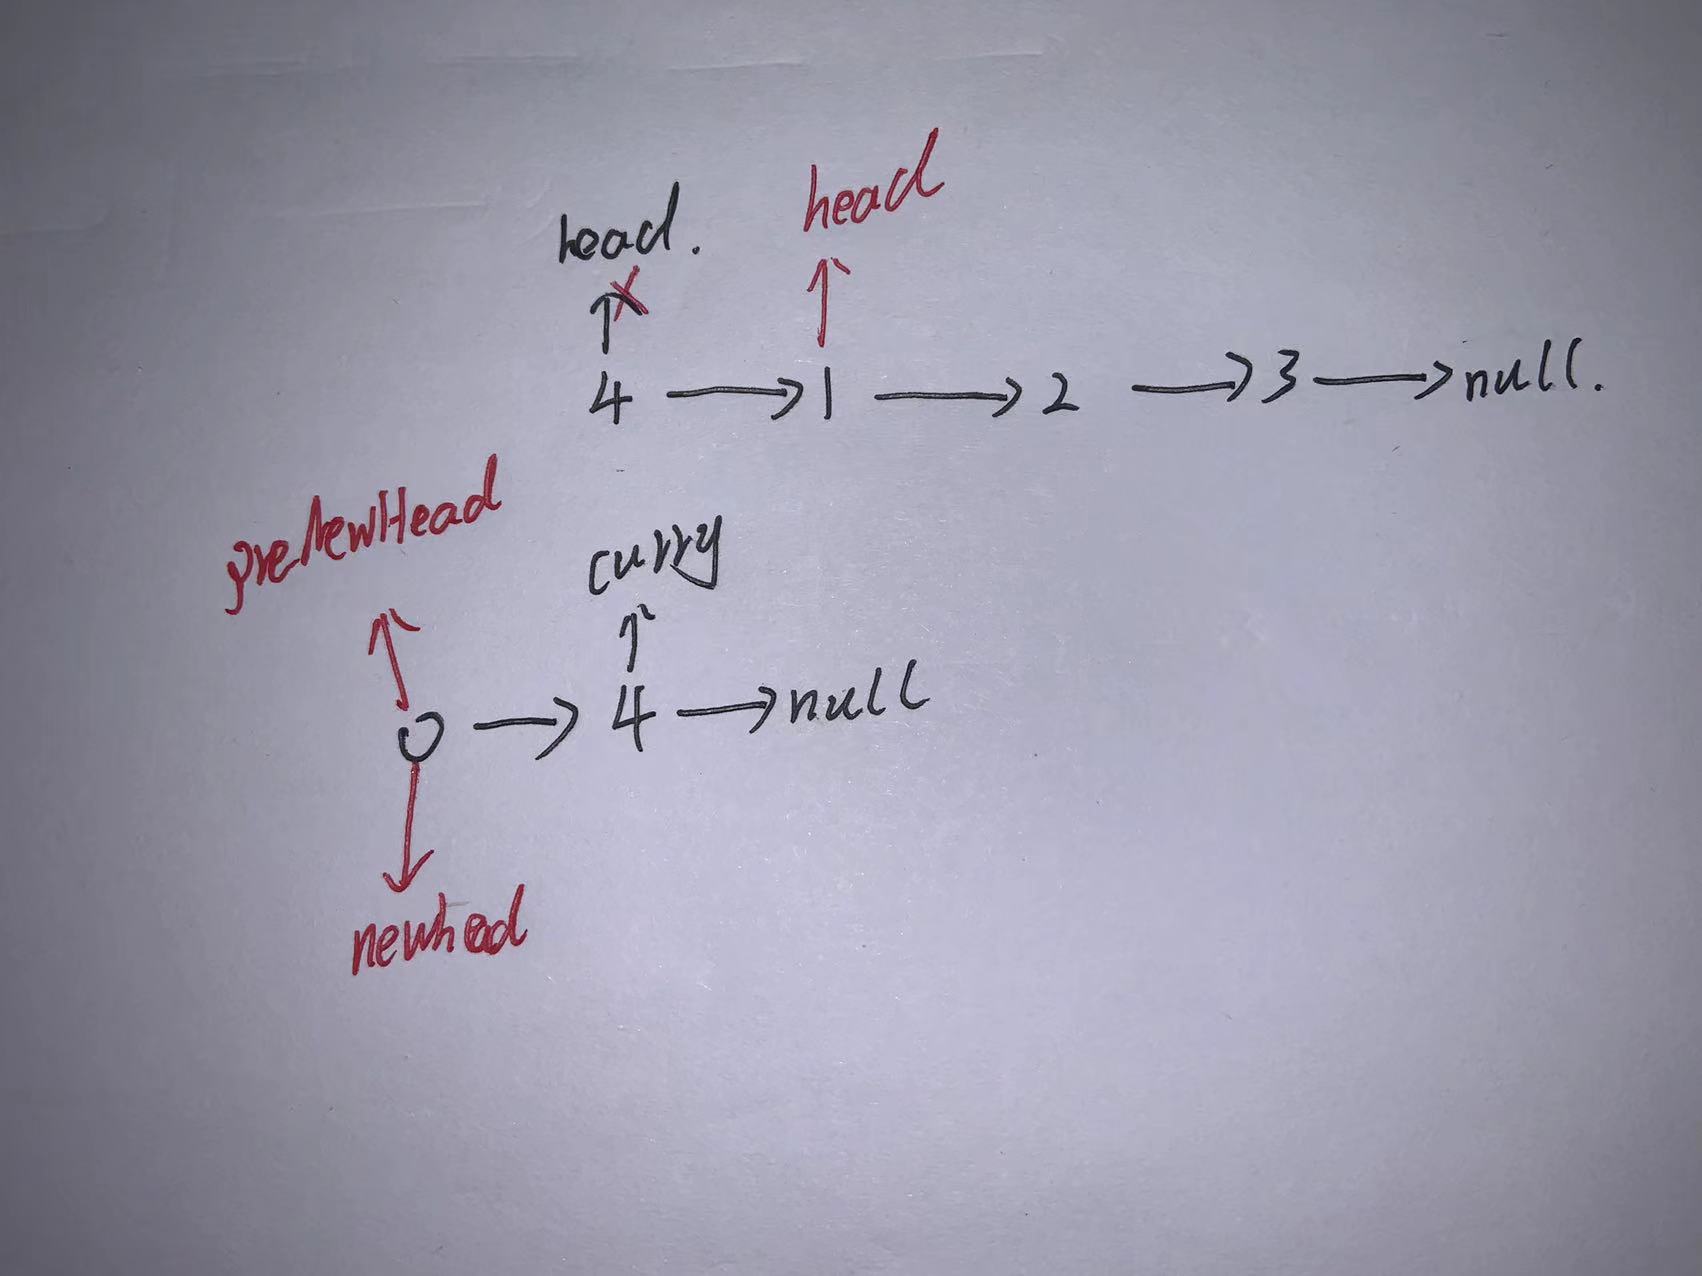 head. head
4 → 1 → 2 → 3 → null.
preNewHead
curry
0 → 4 → null
newhead